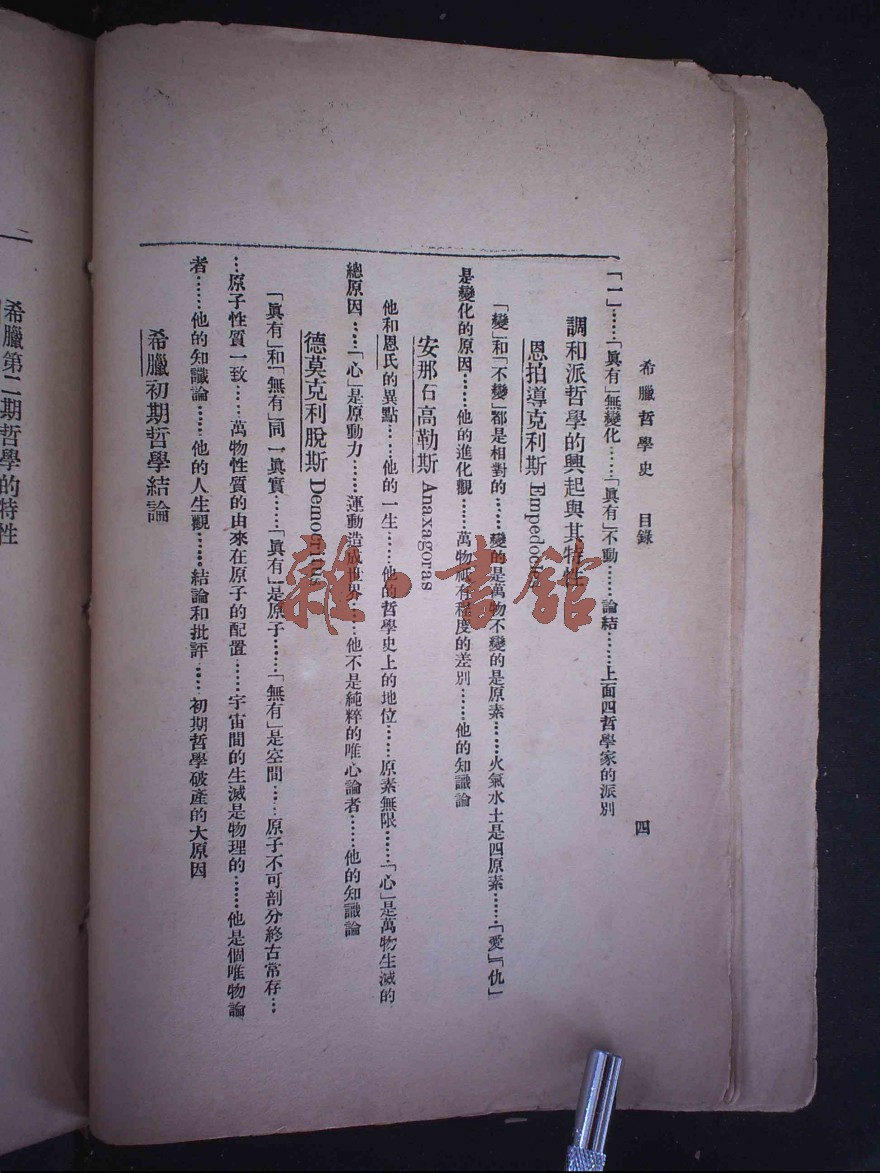 希臘哲學史　目錄
四
「一」……「眞有」無變化……「眞有」不動……論結……上面四哲學家的派別
調和派哲學的興起與其特性
恩拍導克利斯 Empedocles
「變」和「不變」都是相對的……變的是萬物不變的是原素……火氣水土是四原素……「愛」「仇」
是變化的原因……他的進化觀……萬物祇有程度的差別……他的知識論
安那石高勒斯 Anaxagoras
他和恩氏的異點……他的一生……他的哲學史上的地位……原素無限……「心」是萬物生滅的
總原因……「心」是原動力……運動造成世界……他不是純粹的唯心論者……他的知識論
德莫克利脫斯 Democritus
「眞有」和「無有」同一眞實……「眞有」是原子……「無有」是空間……原子不可剖分終古常存…
…原子性質一致……萬物性質的由來在原子的配置……宇宙間的生滅是物理的……他是個唯物論
者……他的知識論……他的人生觀……結論和批評……初期哲學破產的大原因
希臘初期哲學結論
希臘第二期哲學的特性
雜·書館